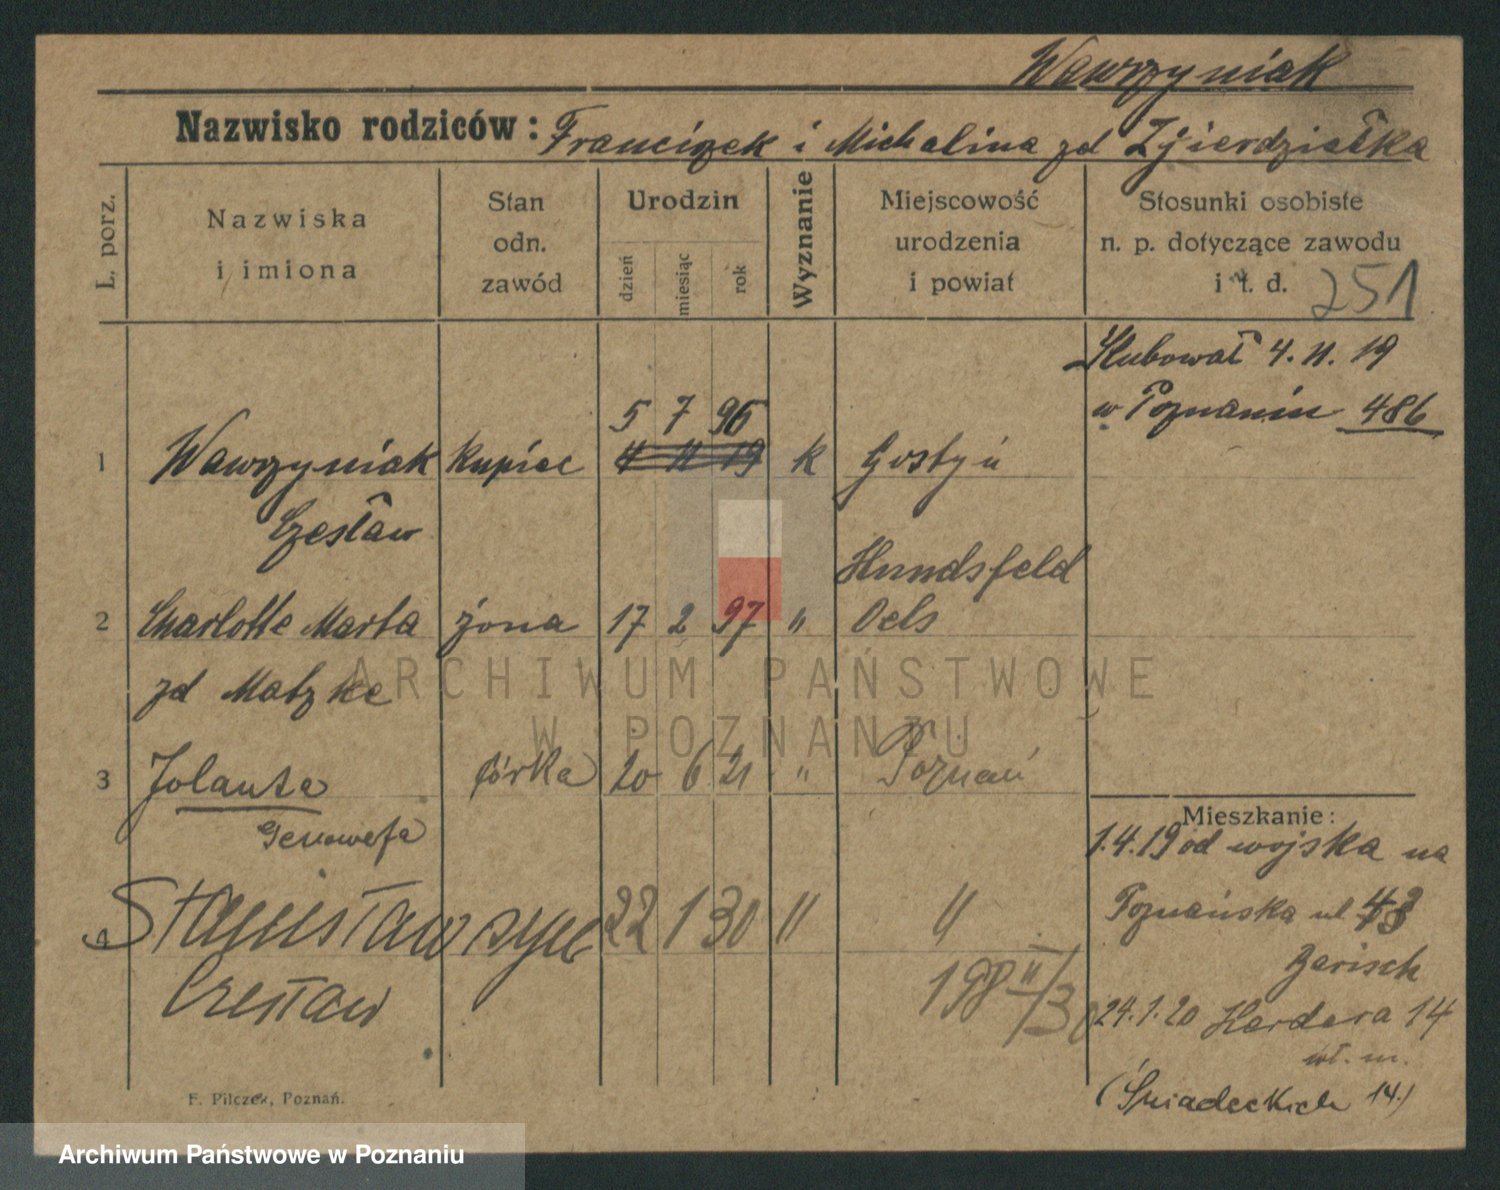 Wawrzyniak
Nazwisko rodziców: Franciszek i Michalina zd
L. porz.
Nazwiska i imiona
Stan odn. zawód
Urodzin
dzień miesiąc rok
Wyznanie
Miejscowość urodzenia i powiat
Stosunki osobiste n. p. dotyczące zawodu i t. d.
251
Ślubował 4. 11. 19
w Poznaniu 486
5 7 96
1 Wawrzyniak kupiec 4 11 19 k Gostyń
Czesław
Hundsfeld
2 Charlotte Marta żona 17 2 97 " Oels
zd Matzke
3 Jolanta córka 20 6 21 " Poznań
Genowefa
4 Stanisław syn 22 1 30 " "
Czesław
198 II/30
Mieszkanie:
1.4.19 od wojska na
Poznańska ul 43
24.1.20 Herdera 14
wł. m.
(Śniadeckich 14.)
F. Pilczek, Poznań.
ARCHIWUM PAŃSTWOWE
W POZNANIU
Archiwum Państwowe w Poznaniu